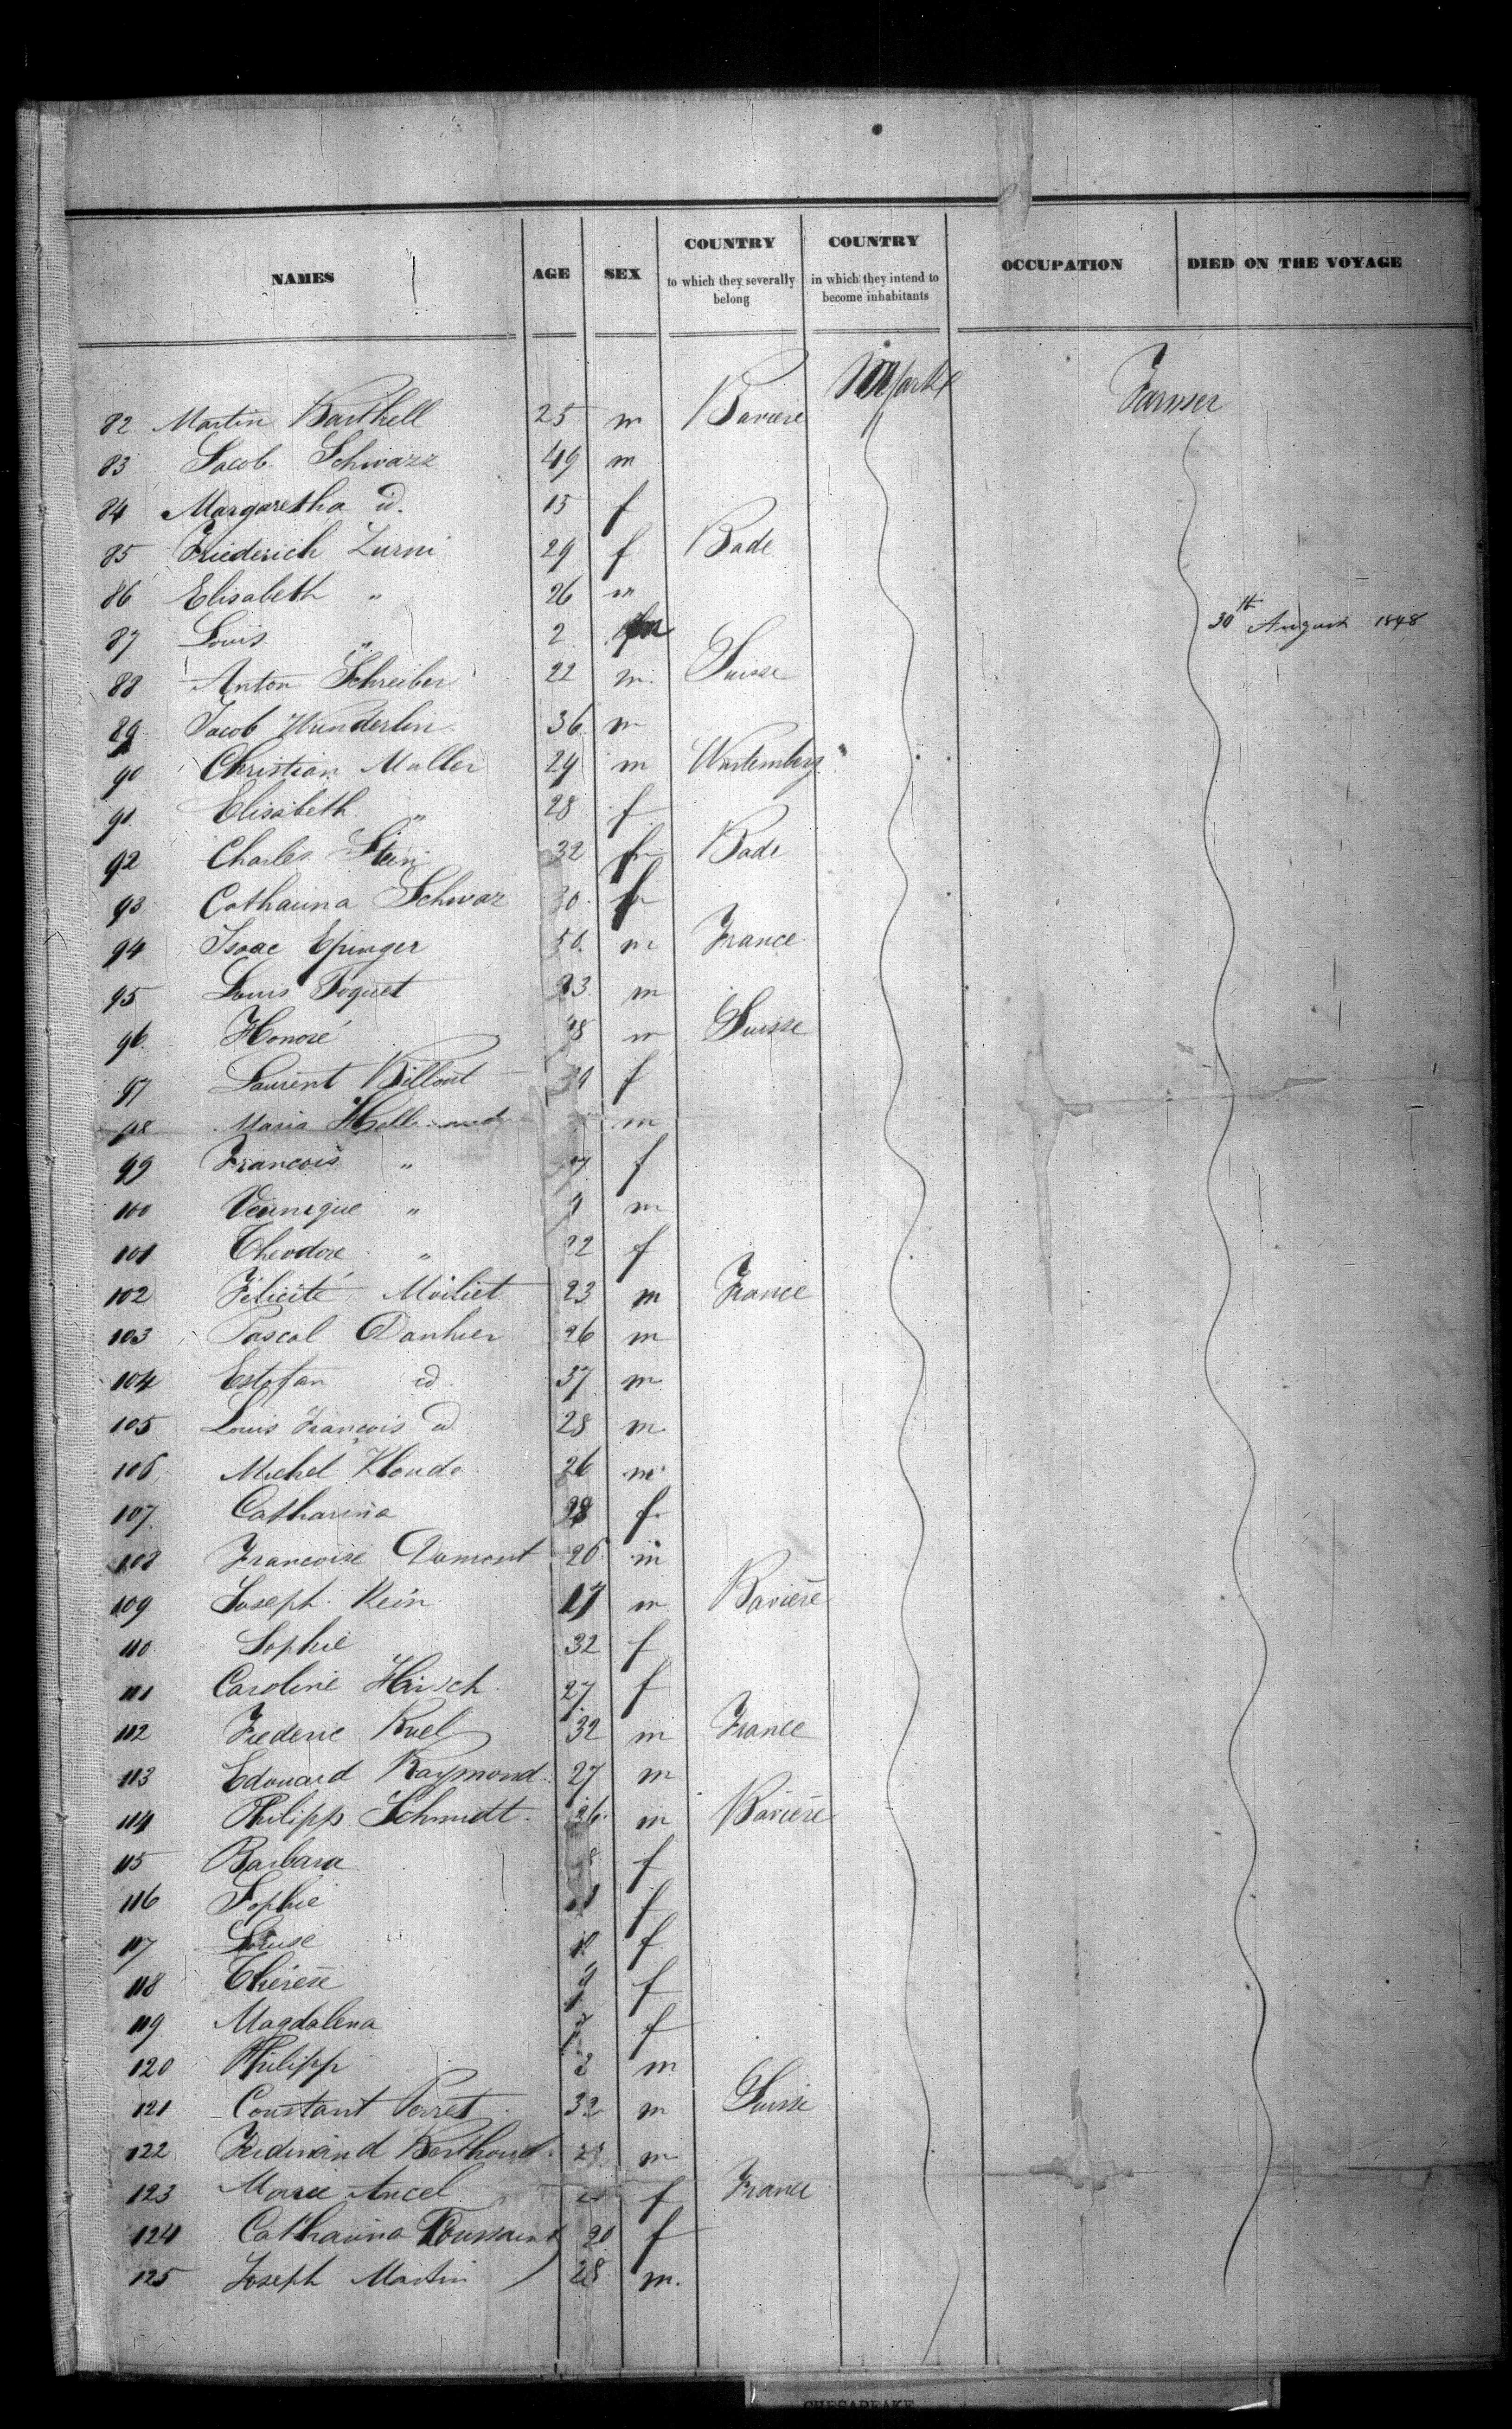 NAMES AGE SEX COUNTRY to which they severally belong COUNTRY in which they intend to become inhabitants OCCUPATION DIED ON THE VOYAGE
82 Martin Barthell 25 m Baviere Farmer
83 Jacob Schwazz 49 m
84 Margaretha id. 15 f
85 Friederich Zurni 29 f Bade
86 Elisabeth " 26 m
87 Louis " 2 30th August 1848
88 Anton Schreiber 22 m. Suisse
89 Jacob Wunderlin 36 m
90 Christian Muller 29 m Wurtemberg
91 Elisabeth " 28 f
92 Charles Stein 32 Bade
93 Catharina Schwaz 30
94 Isaac Epinger 50 m France
95 Louis Toquet m
96 Honoré m Suisse
97 Laurent Billout f
98 Maria m
99 Francois " f
100 Veronique " m
101 Theodore " 22 f
102 Félicité Moiliet 23 m France
103 Pascal Danhier 26 m
104 Estofan id. 37 m
105 Louis Francois id 28 m
106 Michel Houde 26 m
107 Catharina 28 f
108 Francoise Dumont 26 m
109 Joseph Rein 17 m Baviere
110 Sophie 32 f
111 Caroline Hirsch 27 f
112 Frederic Ruel 32 m France
113 Edouard Raymond 27 m
114 Philipp Schmidt 26 m Baviere
115 Barbara f
116 Sophie 11 f
117 Louise f
118 Therese 9 f
119 Magdalena 7 f
120 Philipp 3 m
121 Constant Perret 32 m Suisse
122 Ferdinand Berthoud m
123 Marie Ancel f France
124 Catharina Toussaint 20 f
125 Joseph Martin 28 m.
CHESAPEAKE